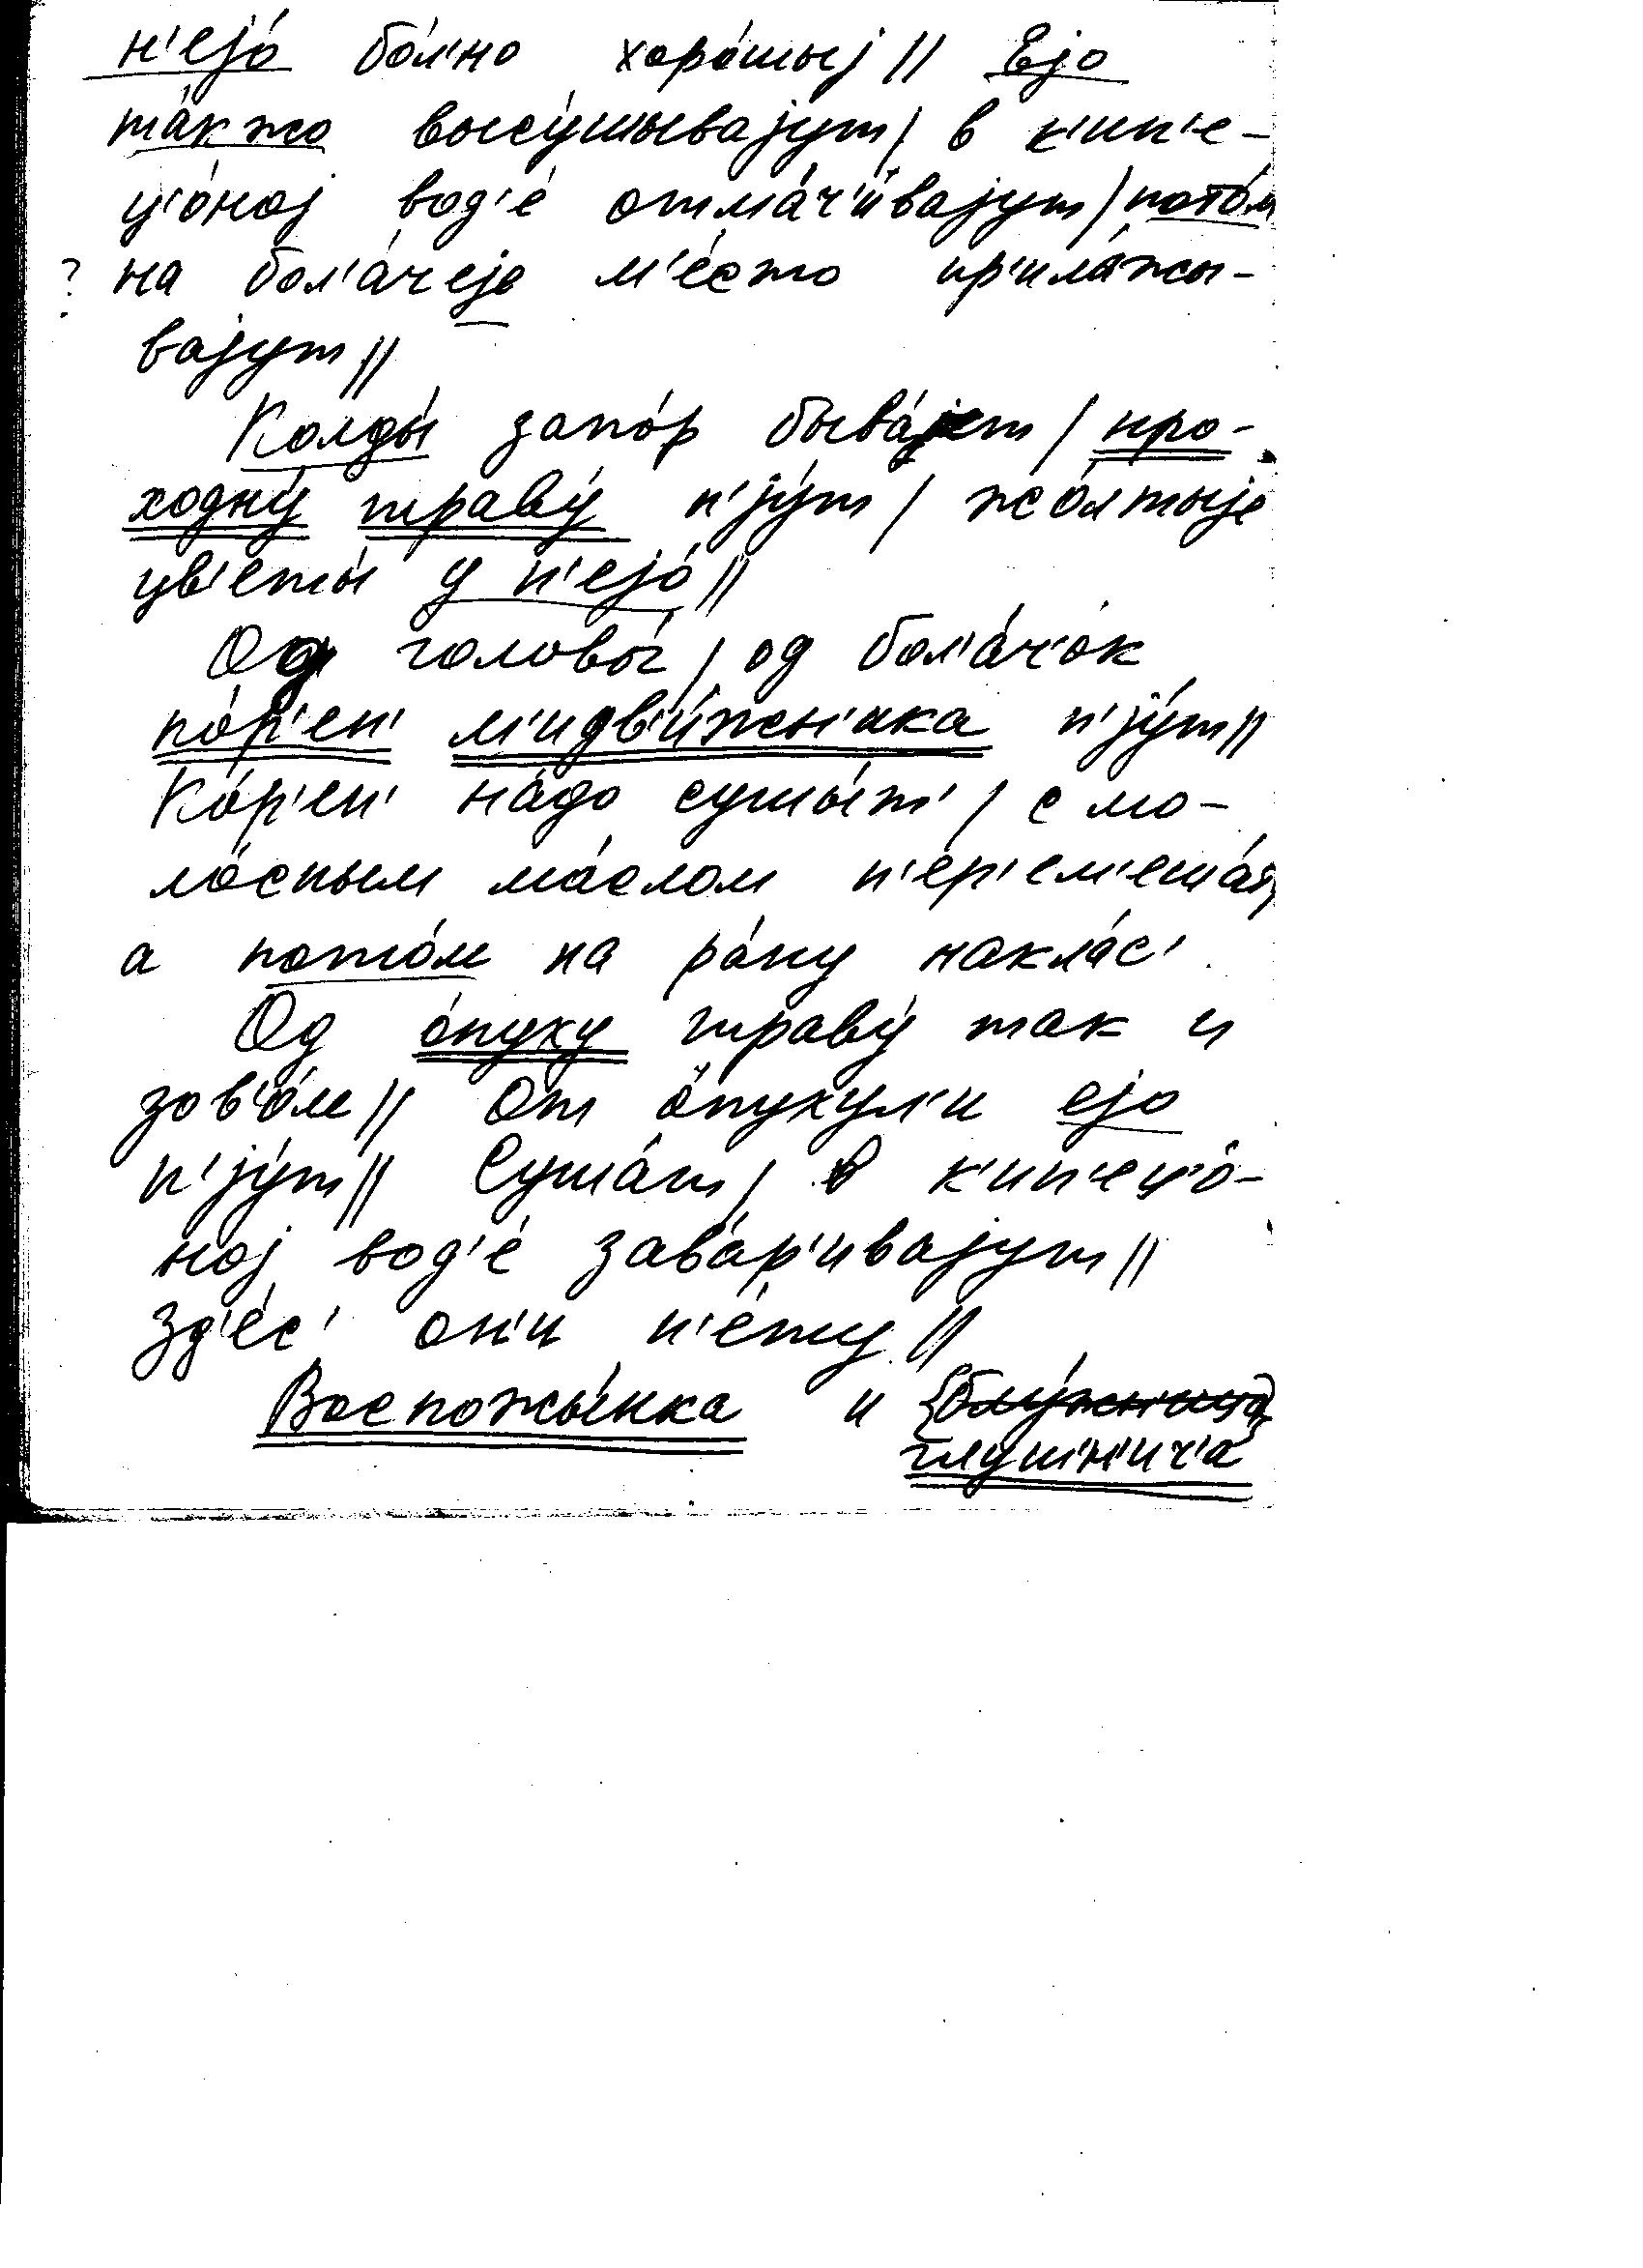 н'еjо́ бо́л'но хоро́шыj // Еjо
та́кжо высу́шывajут / в к'ип'е-
ц'о́ноj вод'е́ отма́ч'ивajут / пото́м
? на бол'а́чеjе м'е́сто пр'ила́жы-
вajут //
Колды́ запо́р быва́jет / про-
ходну́ траву́ п'jу́т / жо́лтыjе
цв'еты́ у н'еjо́ //
Од головы́ / од бол'а́ч'ок
ко́р'ен' м'идв'и́жн'ика п'jу́т //
Ко́р'ен' на́до сушы́т' / с мо-
ло́сным ма́слом п'ер'ем'еша́т'
а пото́м на ра́ну накла́с'.
Од о́пуху траву́ так и
зов'о́м // От о́пухул'и еjо
п'jу́т // Суша́т / в к'ип'ец'о́-
ноj вод'е́ зава́р'ивajут //
Зд'е́с' он'и н'е́ту //
Воспожы́нка и
глушн'ич'а